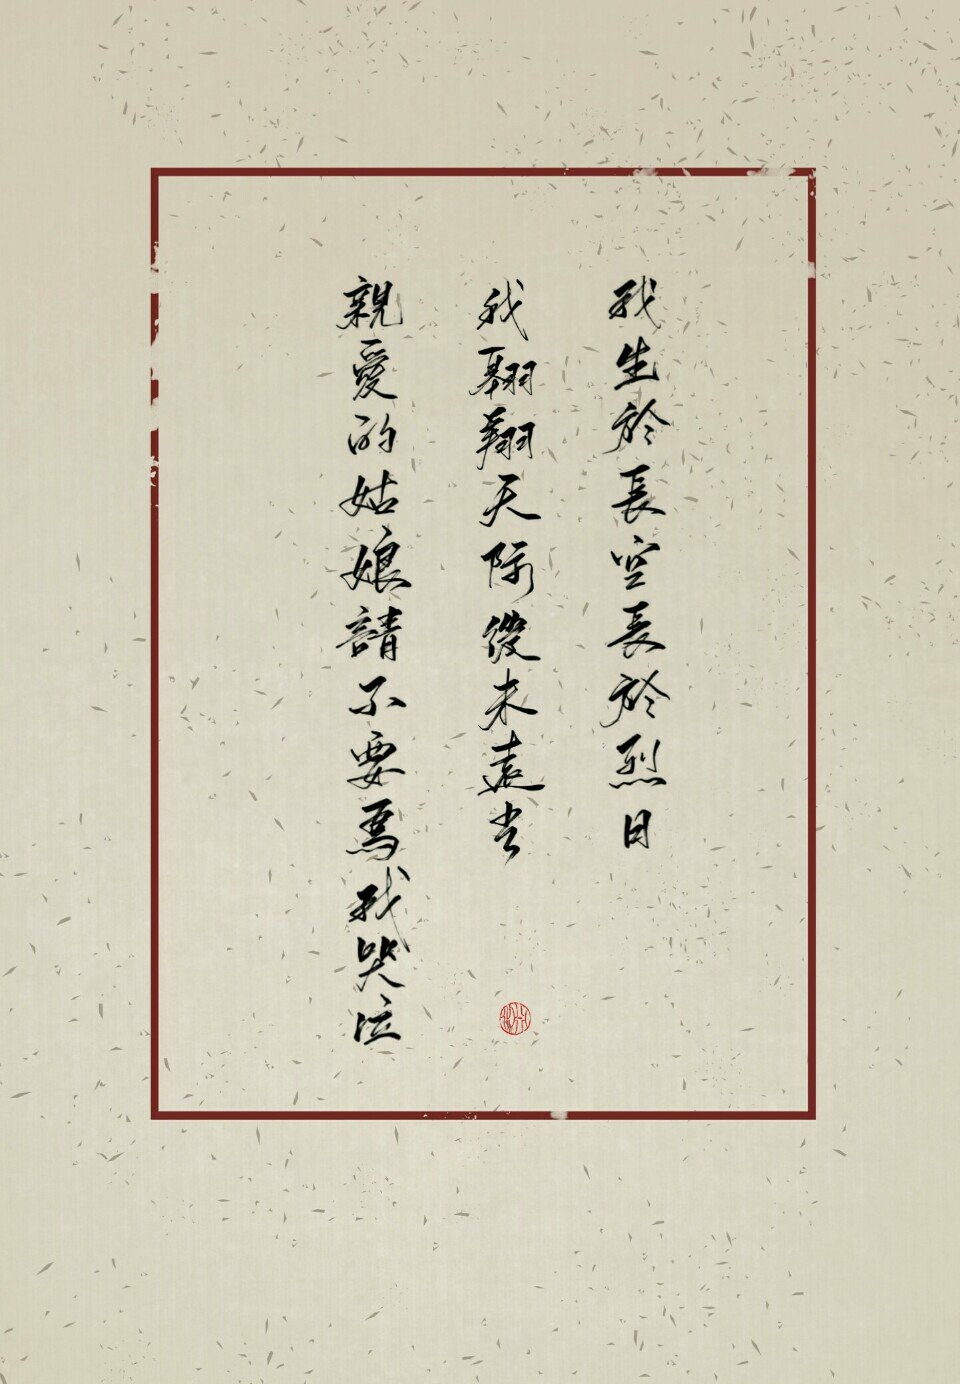 我生於長空長於烈日
我翱翔天際從未遠去
親愛的姑娘請不要為我哭泣